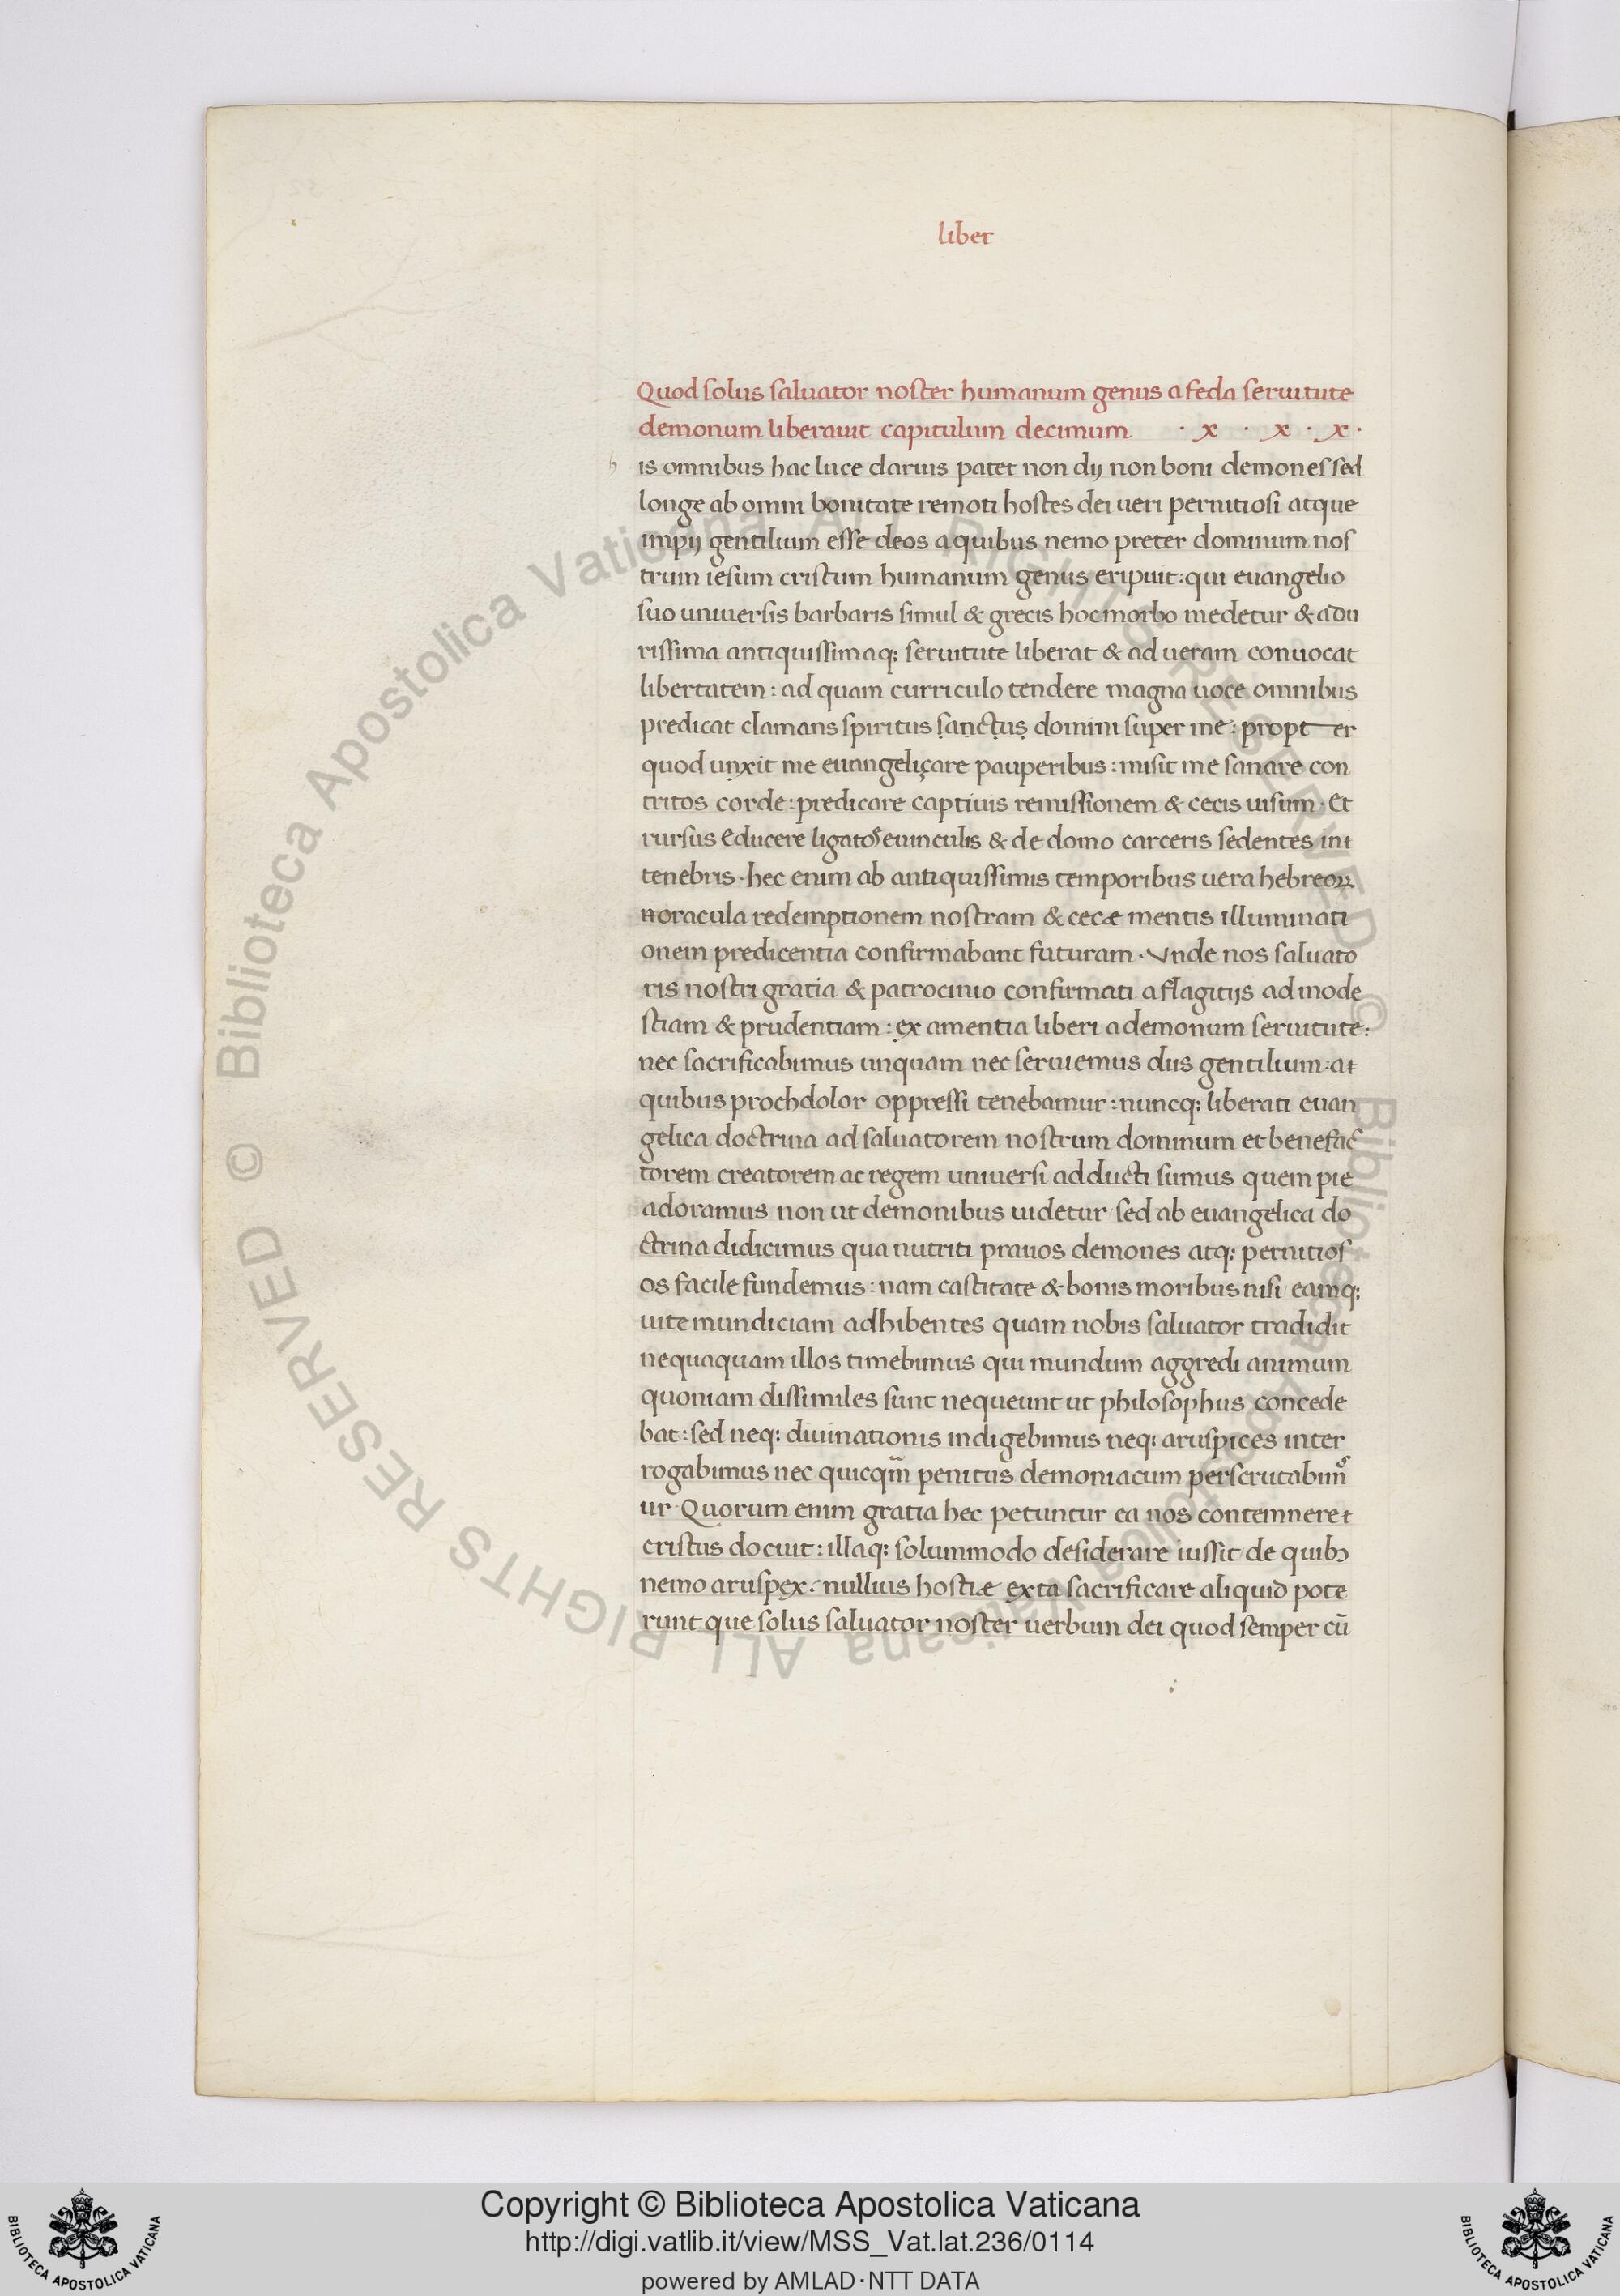 liber
Quod solus saluator noster humanum genus a feda seruitute
demonum liberauit capitulum decimum · x · x · x ·
h is omnibus hac luce clarius patet non dij non boni demones sed
longe ab omni bonitate remoti hostes dei ueri pernitiosi atque
impij gentilium esse deos a quibus nemo preter dominum nos
trum iesum cristum humanum genus eripuit: qui euangelio
suo uniuersis barbaris simul & grecis hoc morbo medetur & a du
rissima antiquissimaq; seruitute liberat & ad ueram conuocat
libertatem: ad quam curriculo tendere magna uoce omnibus
predicat clamans spiritus sanctus domini super me: propter
quod unxit me euangeliçare pauperibus: misit me sanare con
tritos corde: predicare captiuis remissionem & cecis uisum · Et
rursus educere ligatos e uinculis & de domo carceris sedentes in
tenebris · hec enim ab antiquissimis temporibus uera hebreoꝝ
oracula redemptionem nostram & cecæ mentis illuminati
onem predicentia confirmabant futuram · Vnde nos saluato
ris nostri gratia & patrocinio confirmati a flagitijs ad mode
stiam & prudentiam: ex amentia liberi a demonum seruitute:
nec sacrificabimus unquam nec seruiemus diis gentilium: a
quibus prochdolor oppressi tenebamur: nuncq; liberati euan
gelica doctrina ad saluatorem nostrum dominum et benefac
torem creatorem ac regem uniuersi adducti sumus quem pie
adoramus non ut demonibus uidetur sed ab euangelica do
ctrina didicimus qua nutriti prauos demones atq; pernitios
os facile fundemus: nam castitate & bonis moribus nisi eamq;
uite mundiciam adhibentes quam nobis saluator tradidit
nequaquam illos timebimus qui mundum aggredi animum
quoniam dissimiles sunt nequeunt ut philosophus concede
bat: sed neq; diuinationis indigebimus neq; aruspices inter
rogabimus nec quicqm̃ penitus demoniacum perscrutabim
ur · Quorum enim gratia hec petuntur ea nos contemnere
cristus docuit: illaq; solummodo desiderare iussit de quibꝫ
nemo aruspex: nullius hostiæ exta sacrificare aliquid pote
runt que solus saluator noster uerbum dei quod semper cū
© Biblioteca Apostolica Vaticana ALL RIGHTS RESERVED © Biblioteca Apostolica Vaticana ALL RIGHTS RESERVED
Copyright © Biblioteca Apostolica Vaticana
http://digi.vatlib.it/view/MSS_Vat.lat.236/0114
powered by AMLAD·NTT DATA
BIBLIOTECA APOSTOLICA VATICANA
BIBLIOTECA APOSTOLICA VATICANA